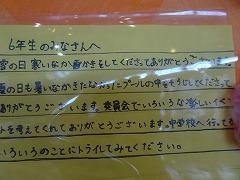 6年生のみなさんへ
雪の日寒いなか雪かきをしてくださってありがとうございます。
夏の日も暑いなかきたなかったプールの中をそうじしてくださって
ありがとうございます。委員会でいろいろな楽しいイベ
ントを考えてくれてありがとうございます。中学校へ行っても
いろいろのことにトライしてみてください。